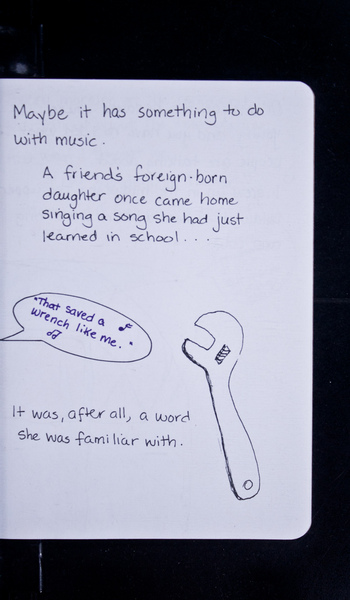 Maybe it has something to do
with music.
A friend's foreign-born
daughter once came home
singing a song she had just
learned in school...
"That saved a
wrench like me."
It was, after all, a word
she was familiar with.